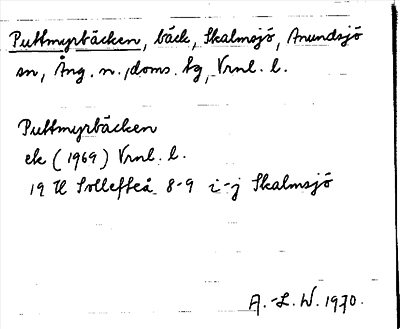 Puttmyrbäcken, bäck, Skalmsjö, Anundsjö
sn, Ång. n., doms. tg, Vrnl. l.
Puttmyrbäcken
ek (1969) Vrnl. l.
19 H Sollefteå 8-9 i-j Skalmsjö
A.-L. W. 1970.